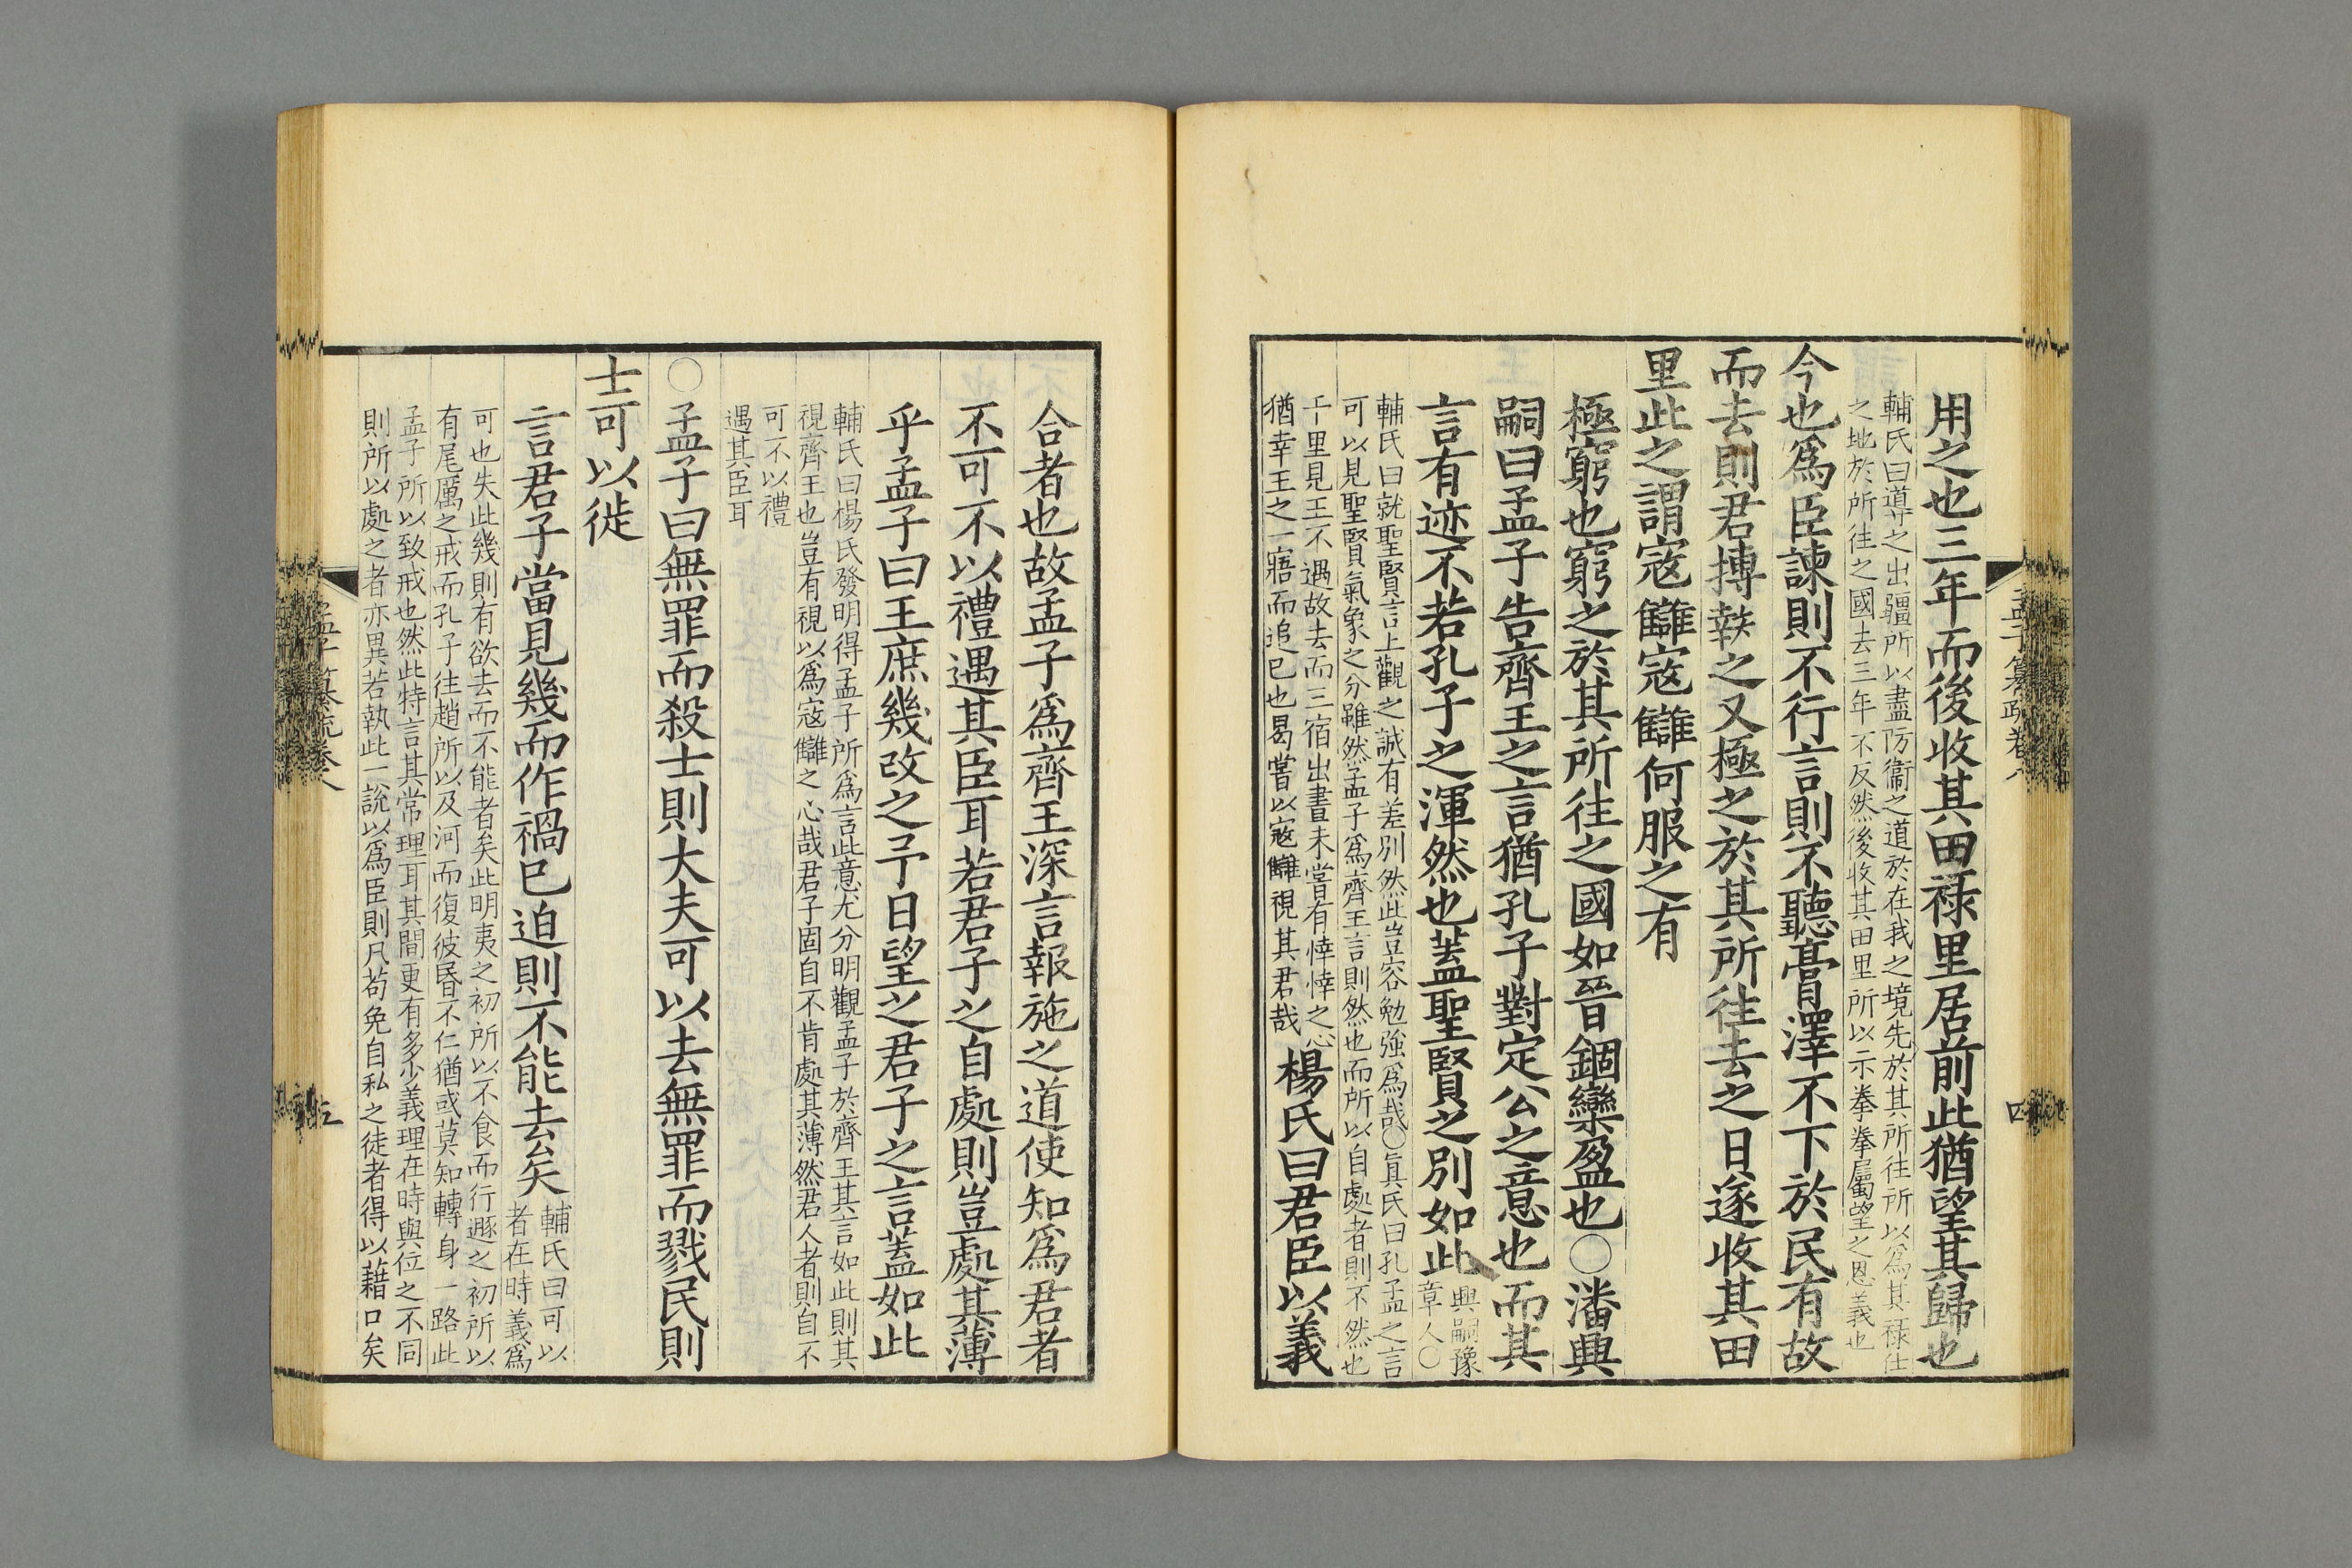 用之也三年而後收其田祿里居前此猶望其歸也
輔氏曰道之出疆所以盡防衞之道於在我之境先於其所往所以爲其祿仕
之地於所往之國去三年不反然後收其田里所以示拳拳屬望之恩義也
今也爲臣諫則不行言則不聽膏澤不下於民有故
而去則君搏執之又極之於其所往去之日遂收其田
里此之謂寇讎寇讎何服之有
極窮也窮之於其所往之國如晉錮欒盈也○潘興
嗣曰孟子告齊王之言猶孔子對定公之意也而其
言有迹不若孔子之渾然也蓋聖賢之別如此
興嗣豫
章人○
輔氏曰就聖賢言上觀之誠有差別然此豈容勉強爲哉○眞氏曰孔孟之言
可以見聖賢氣象之分雖然孟子爲齊王言則然也而所以自處者則不然也
千里見王不遇故去而三宿出晝未嘗有悻悻之心
猶幸王之一寤而追已也曷嘗以寇讎視其君哉
楊氏曰君臣以義
孟子纂疏卷八
四
合者也故孟子爲齊王深言報施之道使知爲君者
不可不以禮遇其臣耳若君子之自處則豈處其薄
乎孟子曰王庶幾改之予日望之君子之言蓋如此
輔氏曰楊氏發明得孟子所爲言此意尤分明觀孟子於齊王其言如此則其
視齊王也豈有視以爲寇讎之心哉君子固自不肯處其薄然君人者則自不
可不以禮
遇其臣耳
○孟子曰無罪而殺士則大夫可以去無罪而戮民則
士可以徙
言君子當見幾而作禍已迫則不能去矣
輔氏曰可以
者在時義爲
可也失此幾則有欲去而不能者矣此明夷之初所以不食而行遯之初所以
有尾厲之戒而孔子往趙所以及河而復彼昬不仁猶或莫知轉身一路此
孟子所以致戒也然此特言其常理耳其間更有多少義理在時與位之不同
則所以處之者亦異若執此一說以爲臣則凡苟免自私之徒者得以藉口矣
孟子纂疏卷八
五